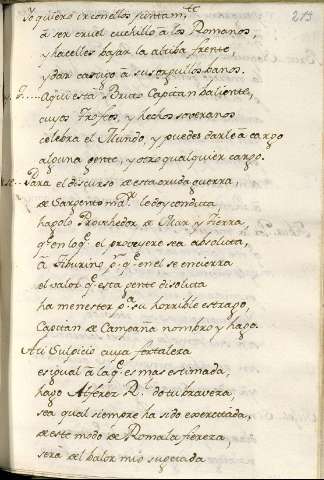 213
Yo quiero ir con ellos juntam.te
à ser cruel cuchillo à los Romanos,
y hacelles bajar la altiba frente,
y dar castigo à sus orgullos banos.
Aqui está Bruto Capitan baliente,
cuyos trofeos, y hechos soberanos
celebra el Mundo, y puedes darle à cargo
alguna gente, y otro qualquier cargo.
Para el discurso de esta cruda guerra,
de Sargento ma.r le doy conduta
hagolo Probehedor de Mar y Tierra
q.e en lo q.e el proveyere sea absoluta,
à Tiburino p.r q.e en el se encierra
el valor q.e esta gente disoluta
ha menester p.a su horrible estrago,
Capitan de Campaña nombro y hago.
A ti Sulpicio cuya fortaleza
es igual à la q.e es mas estimada,
hago Alferez R.l do tu braveza,
sea qual siempre ha sido exercitada,
de este modo de Roma la fiereza,
sera del balor mio sugetada